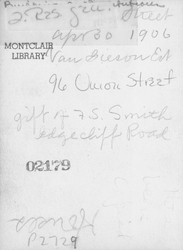 Street
Apr 30 1906
MONTCLAIR
LIBRARY
Van Gieson Est
96 Union Street
gift of F S. Smith
Edgecliff Road
02179
P2729